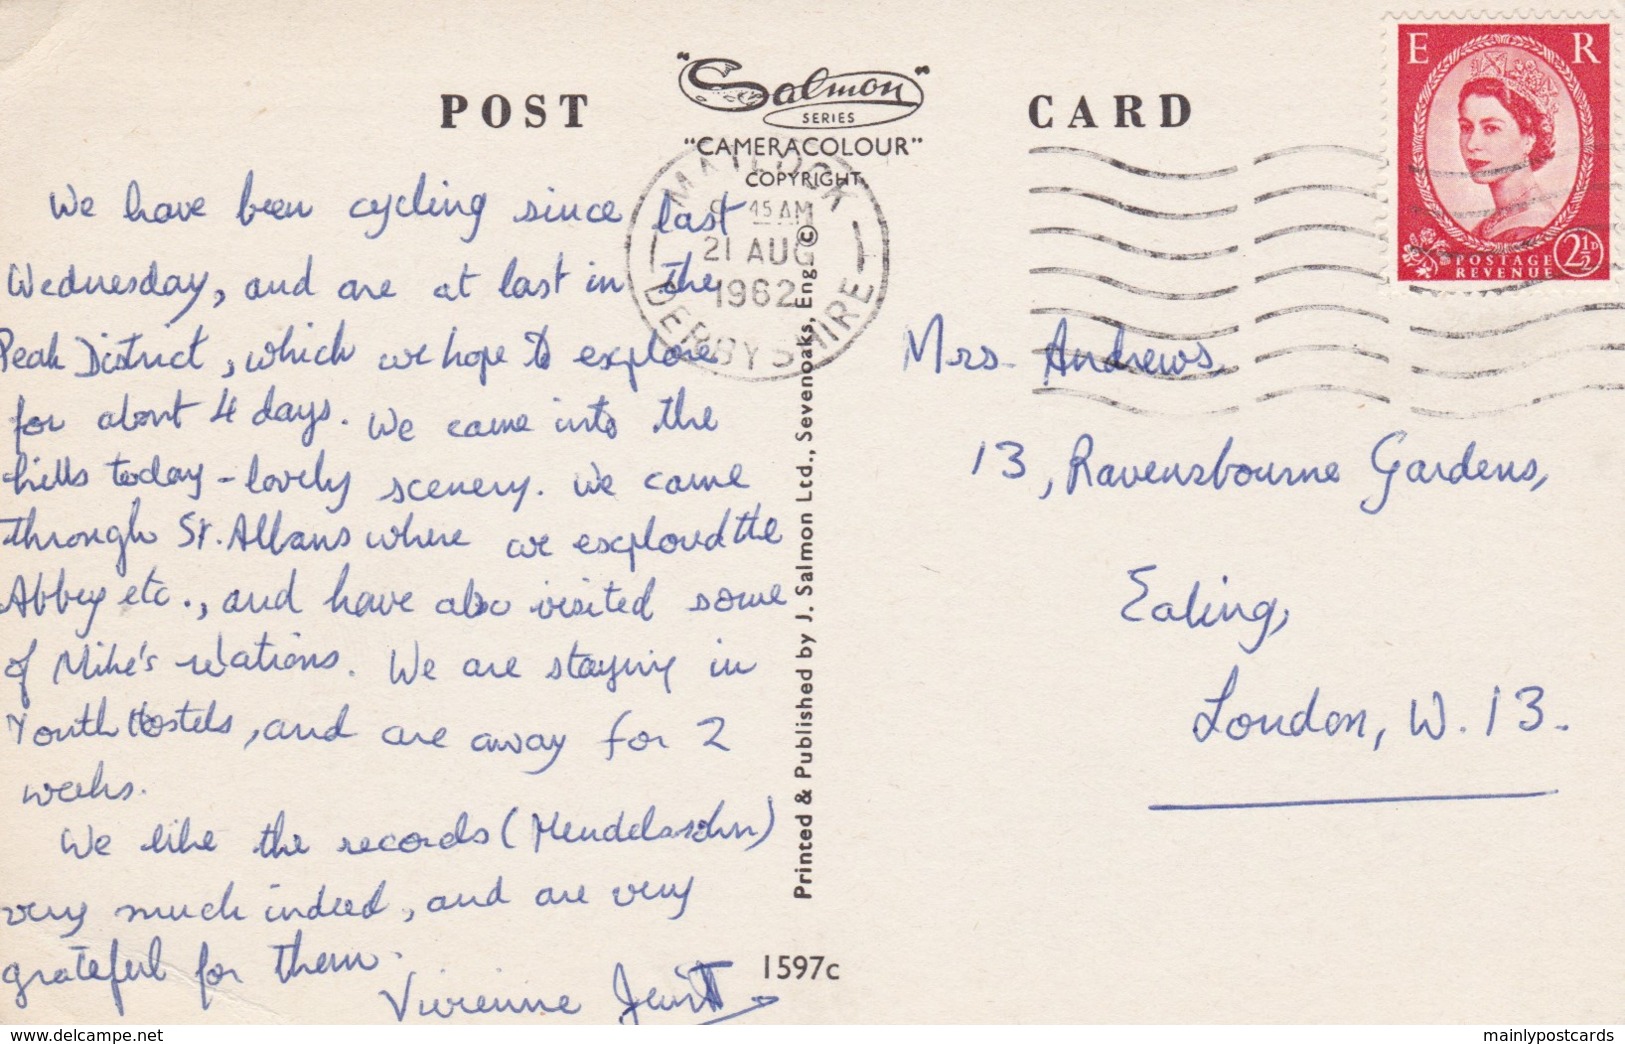 POST CARD
"Salmon"
SERIES
"CAMERACOLOUR"
COPYRIGHT
MATLOCK
45 AM
21 AUG
1962
DERBYSHIRE
E R
2½D
POSTAGE
REVENUE
We have been cycling since last
Wednesday, and are at last in the
Peak District, which we hope to explore
for about 4 days. We came into the
hills today - lovely scenery. We came
through St. Albans where we explored the
Abbey etc., and have also visited some
of Mike's relations. We are staying in
Youth Hostels, and are away for 2
weeks.
We like the records (Mendelssohn)
very much indeed, and are very
grateful for them.
Vivienne
Mrs. Andrews,
13, Ravensbourne Gardens,
Ealing,
London, W. 13.
Printed & Published by J. Salmon Ltd., Sevenoaks, Eng. ©
1597c
delcampe.net
mainlypostcards